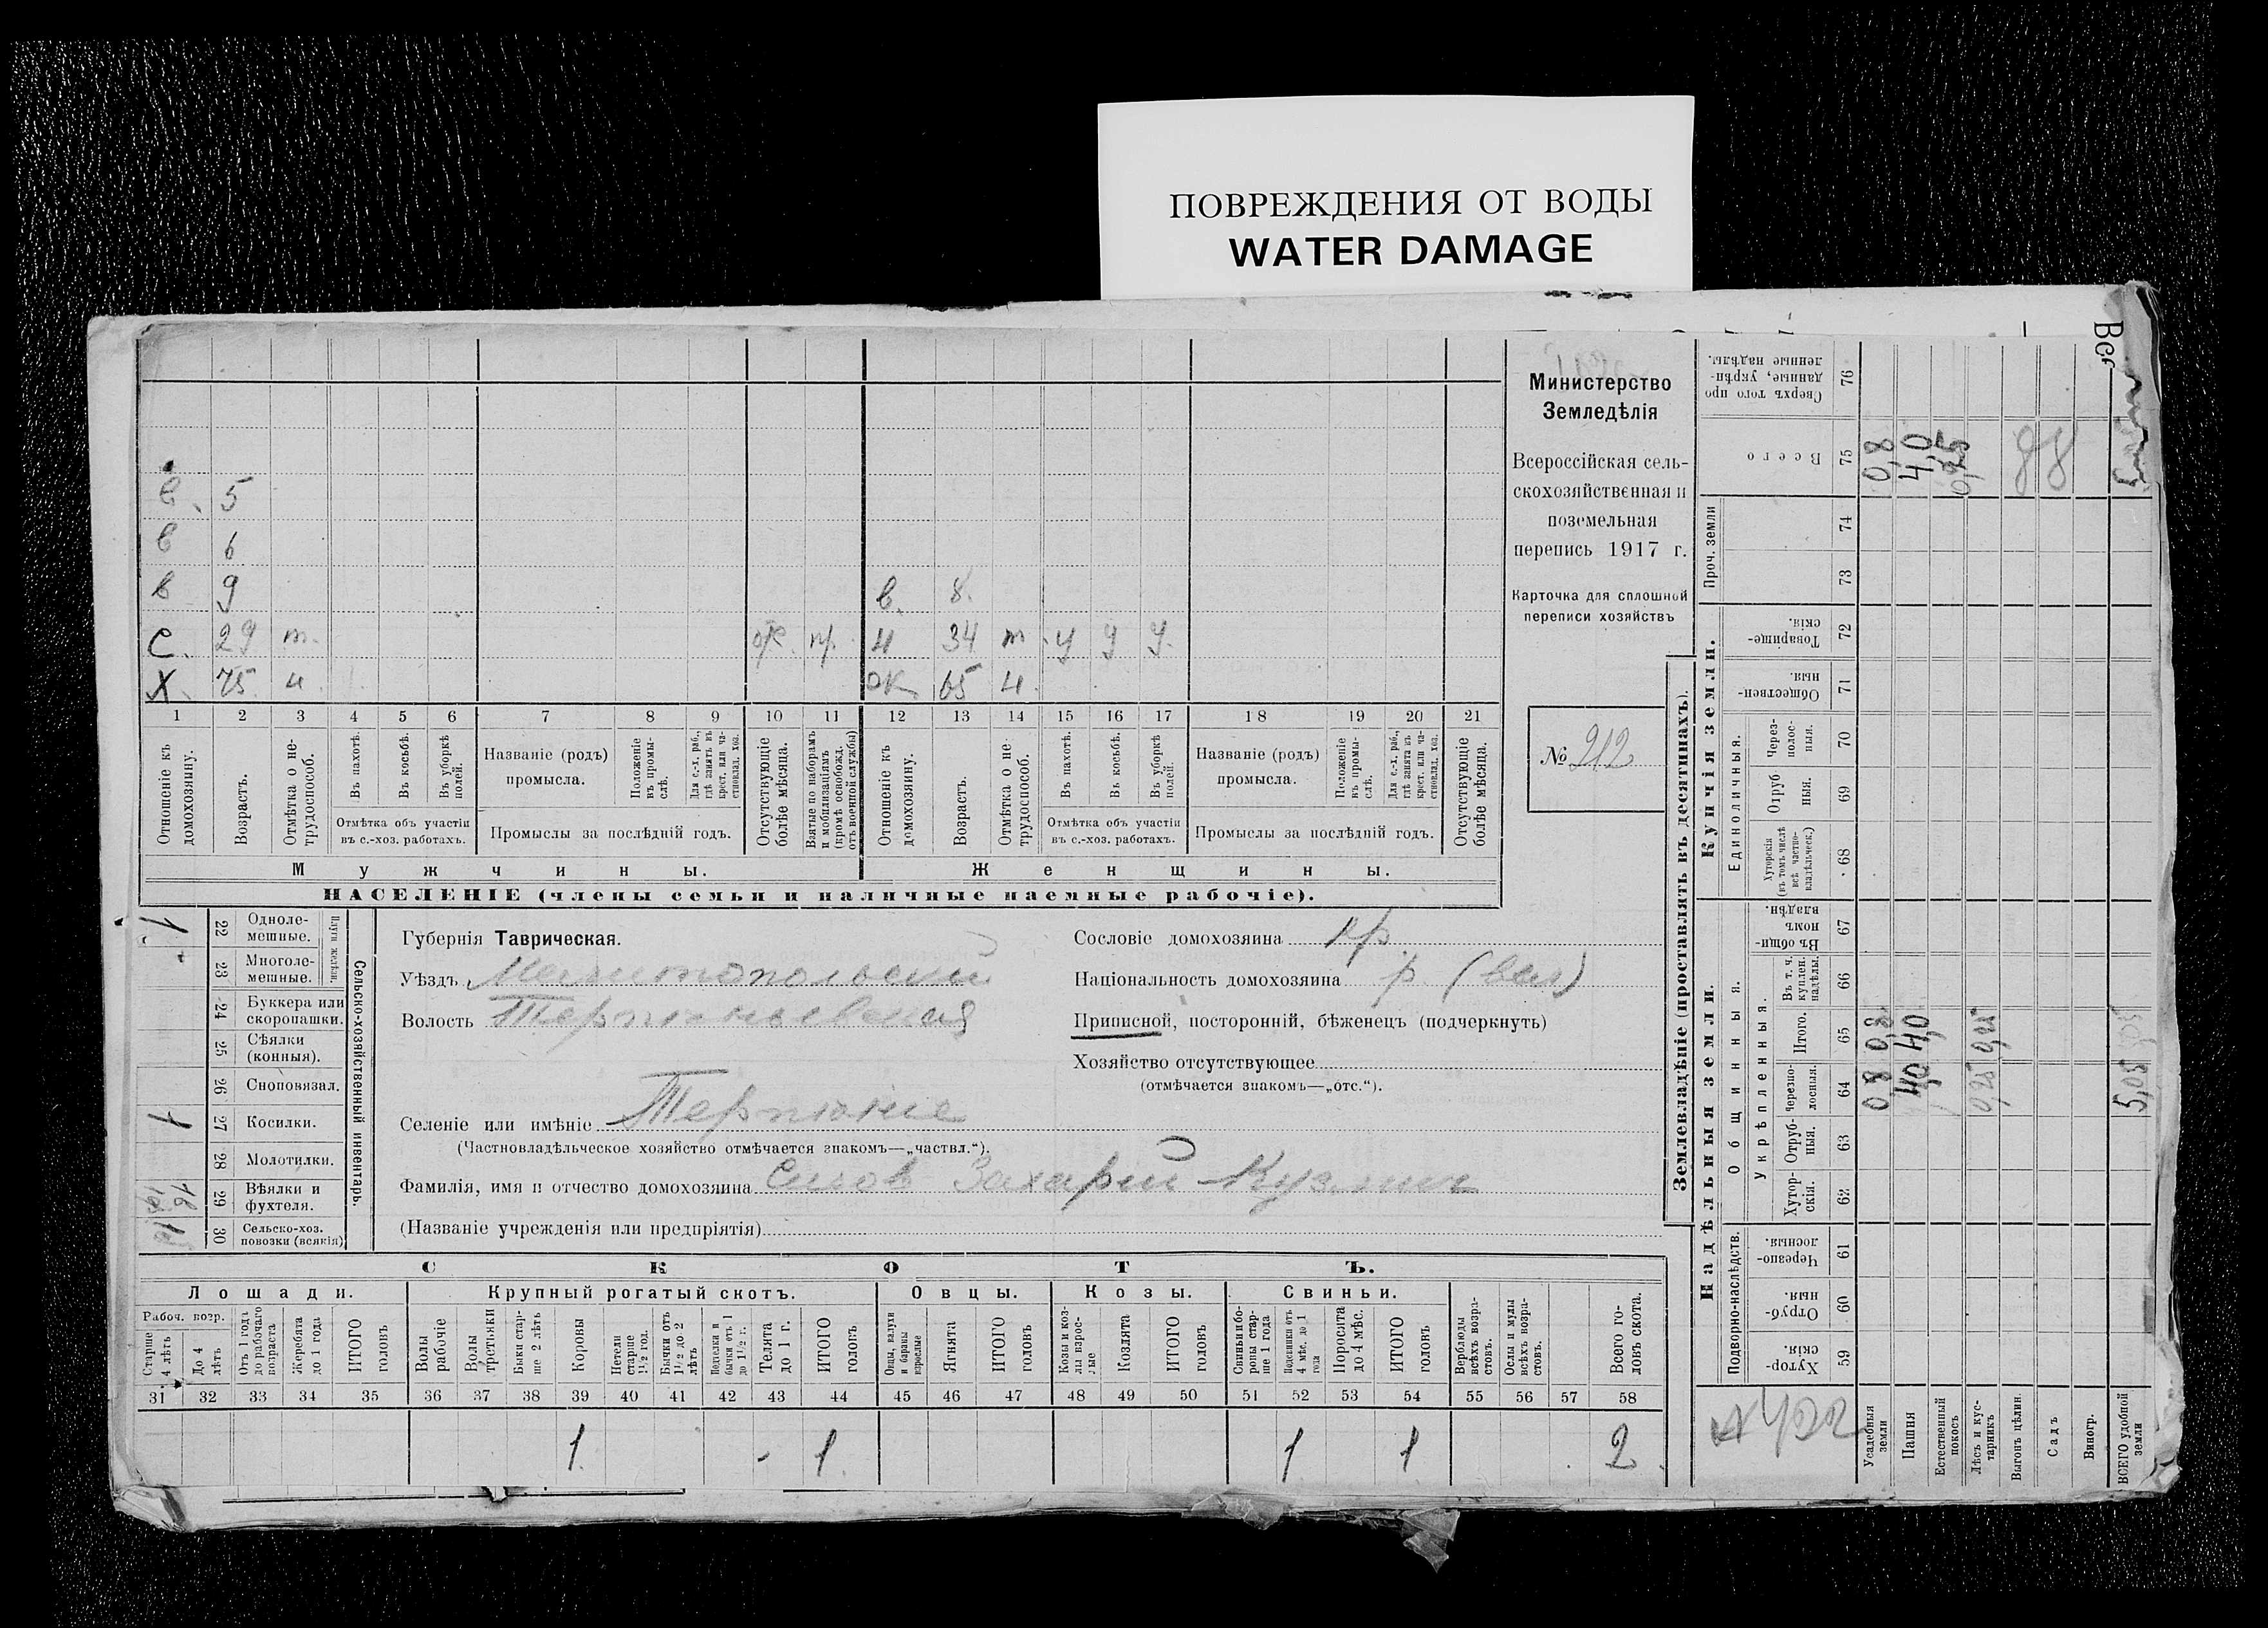 ПОВРЕЖДЕНИЯ ОТ ВОДЫ
WATER DAMAGE
Все
в. 5
в 6
в 9 в. 8.
С. 29 т. пр. 34 т у у у.
Х. 75 н. 65 н.
1 2 3 4 5 6 7 8 9 10 11 12 13 14 15 16 17 18 19 20 21
Отношеніе къ домохозяину.
Возрастъ.
Отмѣтка о не-трудоспособ.
Въ пахотѣ.
Въ косьбѣ.
Въ уборкѣ полей.
Отмѣтка объ участіи въ с.-хоз. работахъ.
Названіе (родъ) промысла.
Положеніе въ промы-слѣ.
Для с.-х. раб., гдѣ занятъ въ крест. или ча-стновлад. хоз.
Промыслы за послѣдній годъ.
Отсутствующіе болѣе мѣсяца.
Взятые по наборамъ и мобилизаціямъ (кромѣ освобожд. отъ военной службы)
Отношеніе къ домохозяину.
Возрастъ.
Отмѣтка о не-трудоспособ.
Въ пахотѣ.
Въ косьбѣ.
Въ уборкѣ полей.
Отмѣтка объ участіи въ с.-хоз. работахъ.
Названіе (родъ) промысла.
Положеніе въ промы-слѣ.
Для с.-х. раб., гдѣ занята въ крест. или ча-стновлад. хоз.
Промыслы за послѣдній годъ.
Отсутствующіе болѣе мѣсяца.
Мужчины. Женщины.
НАСЕЛЕНІЕ (члены семьи и наличные наемные рабочіе).
Министерство
Земледѣлія
Всероссійская сель-
скохозяйственная и
поземельная
перепись 1917 г.
Карточка для сплошной
переписи хозяйствъ
№ 212
Сельско-хозяйственный инвентарь.
Плуги желѣзн.
22 Одноле-мешные. 1
23 Многоле-мешные.
24 Буккера или скоропашки.
25 Сѣялки (конныя).
26 Сноповязал.
27 Косилки. 1
28 Молотилки.
29 Вѣялки и фухтеля.
30 Сельско-хоз. повозки (всякія)
Губернія Таврическая.
Уѣздъ Мелитопольскій
Волость Терпѣньевская
Селеніе или имѣніе Терпѣніе
(Частновладѣльческое хозяйство отмѣчается знакомъ—„частвл.“).
Фамилія, имя и отчество домохозяина Сизов Захарий Кузмич
(Названіе учрежденія или предпріятія)
Сословіе домохозяина кр
Національность домохозяина р. (вел)
Приписной, посторонній, бѣженецъ (подчеркнуть)
Хозяйство отсутствующее
(отмѣчается знакомъ—„отс.“).
СКОТЪ.
Лошади. Крупный рогатый скотъ. Овцы. Козы. Свиньи.
Рабоч. возр.
Старше 4 лѣтъ
До 4 лѣтъ
Отъ 1 года до рабочаго возраста
Жеребята до 1 года
ИТОГО головъ
Волы рабочіе
Волы третьяки
Быки стар-ше 2 лѣтъ
Коровы
Нетели старше 1½ год.
Бычки отъ 1½ до 2 лѣтъ
Нетелки и бычки отъ 1 до 1½ г.
Телята до 1 г.
ИТОГО головъ
Овцы, валухи и бараны взрослые
Ягнята
ИТОГО головъ
Козы и коз-лы взрос-лые
Козлята
ИТОГО головъ
Свиньи и бо-ровы стар-ше 1 года
Подсвинки отъ 4 мѣс. до 1 года
Поросята до 4 мѣс.
ИТОГО головъ
Верблюды всѣхъ возра-стовъ.
Ослы и мулы всѣхъ возра-стовъ.
Всего го-ловъ скота.
31 32 33 34 35 36 37 38 39 40 41 42 43 44 45 46 47 48 49 50 51 52 53 54 55 56 57 58
1 1 1 1 2
Землевладѣніе (проставлять въ десятинахъ).
Надѣльныя земли.
Купчія земли.
Проч. земли
Подворно-наслѣдств.
Общинныя.
Укрѣпленныя.
Единоличныя.
Хутор-скія. 59
Отруб-ныя. 60
Черезпо-лосныя. 61
Хутор-скія. 62
Отруб-ныя. 63
Черезпо-лосныя. 64
Итого. 65
Въ т. ч. куплен. надѣлы. 66
Въ общин-номъ владѣн. 67
Хуторскія (въ томъ числѣ всѣ частно-владѣльческ.) 68
Отруб ныя. 69
Через-полос-ныя. 70
Обществен-ныя. 71
Товарище-скія. 72
73
74
Всего 75
Сверхъ того про данные, укрѣп-ленные надѣлы. 76
Усадебныя земли 0,8 0,8 0,8
Пашня 4,0 4,0 4,0
Естественный покосъ
Лѣсъ и кус-тарникъ 0,25 0,25
Выгонъ цѣлин.
Садъ
Виногр.
ВСЕГО удобной земли 5,05